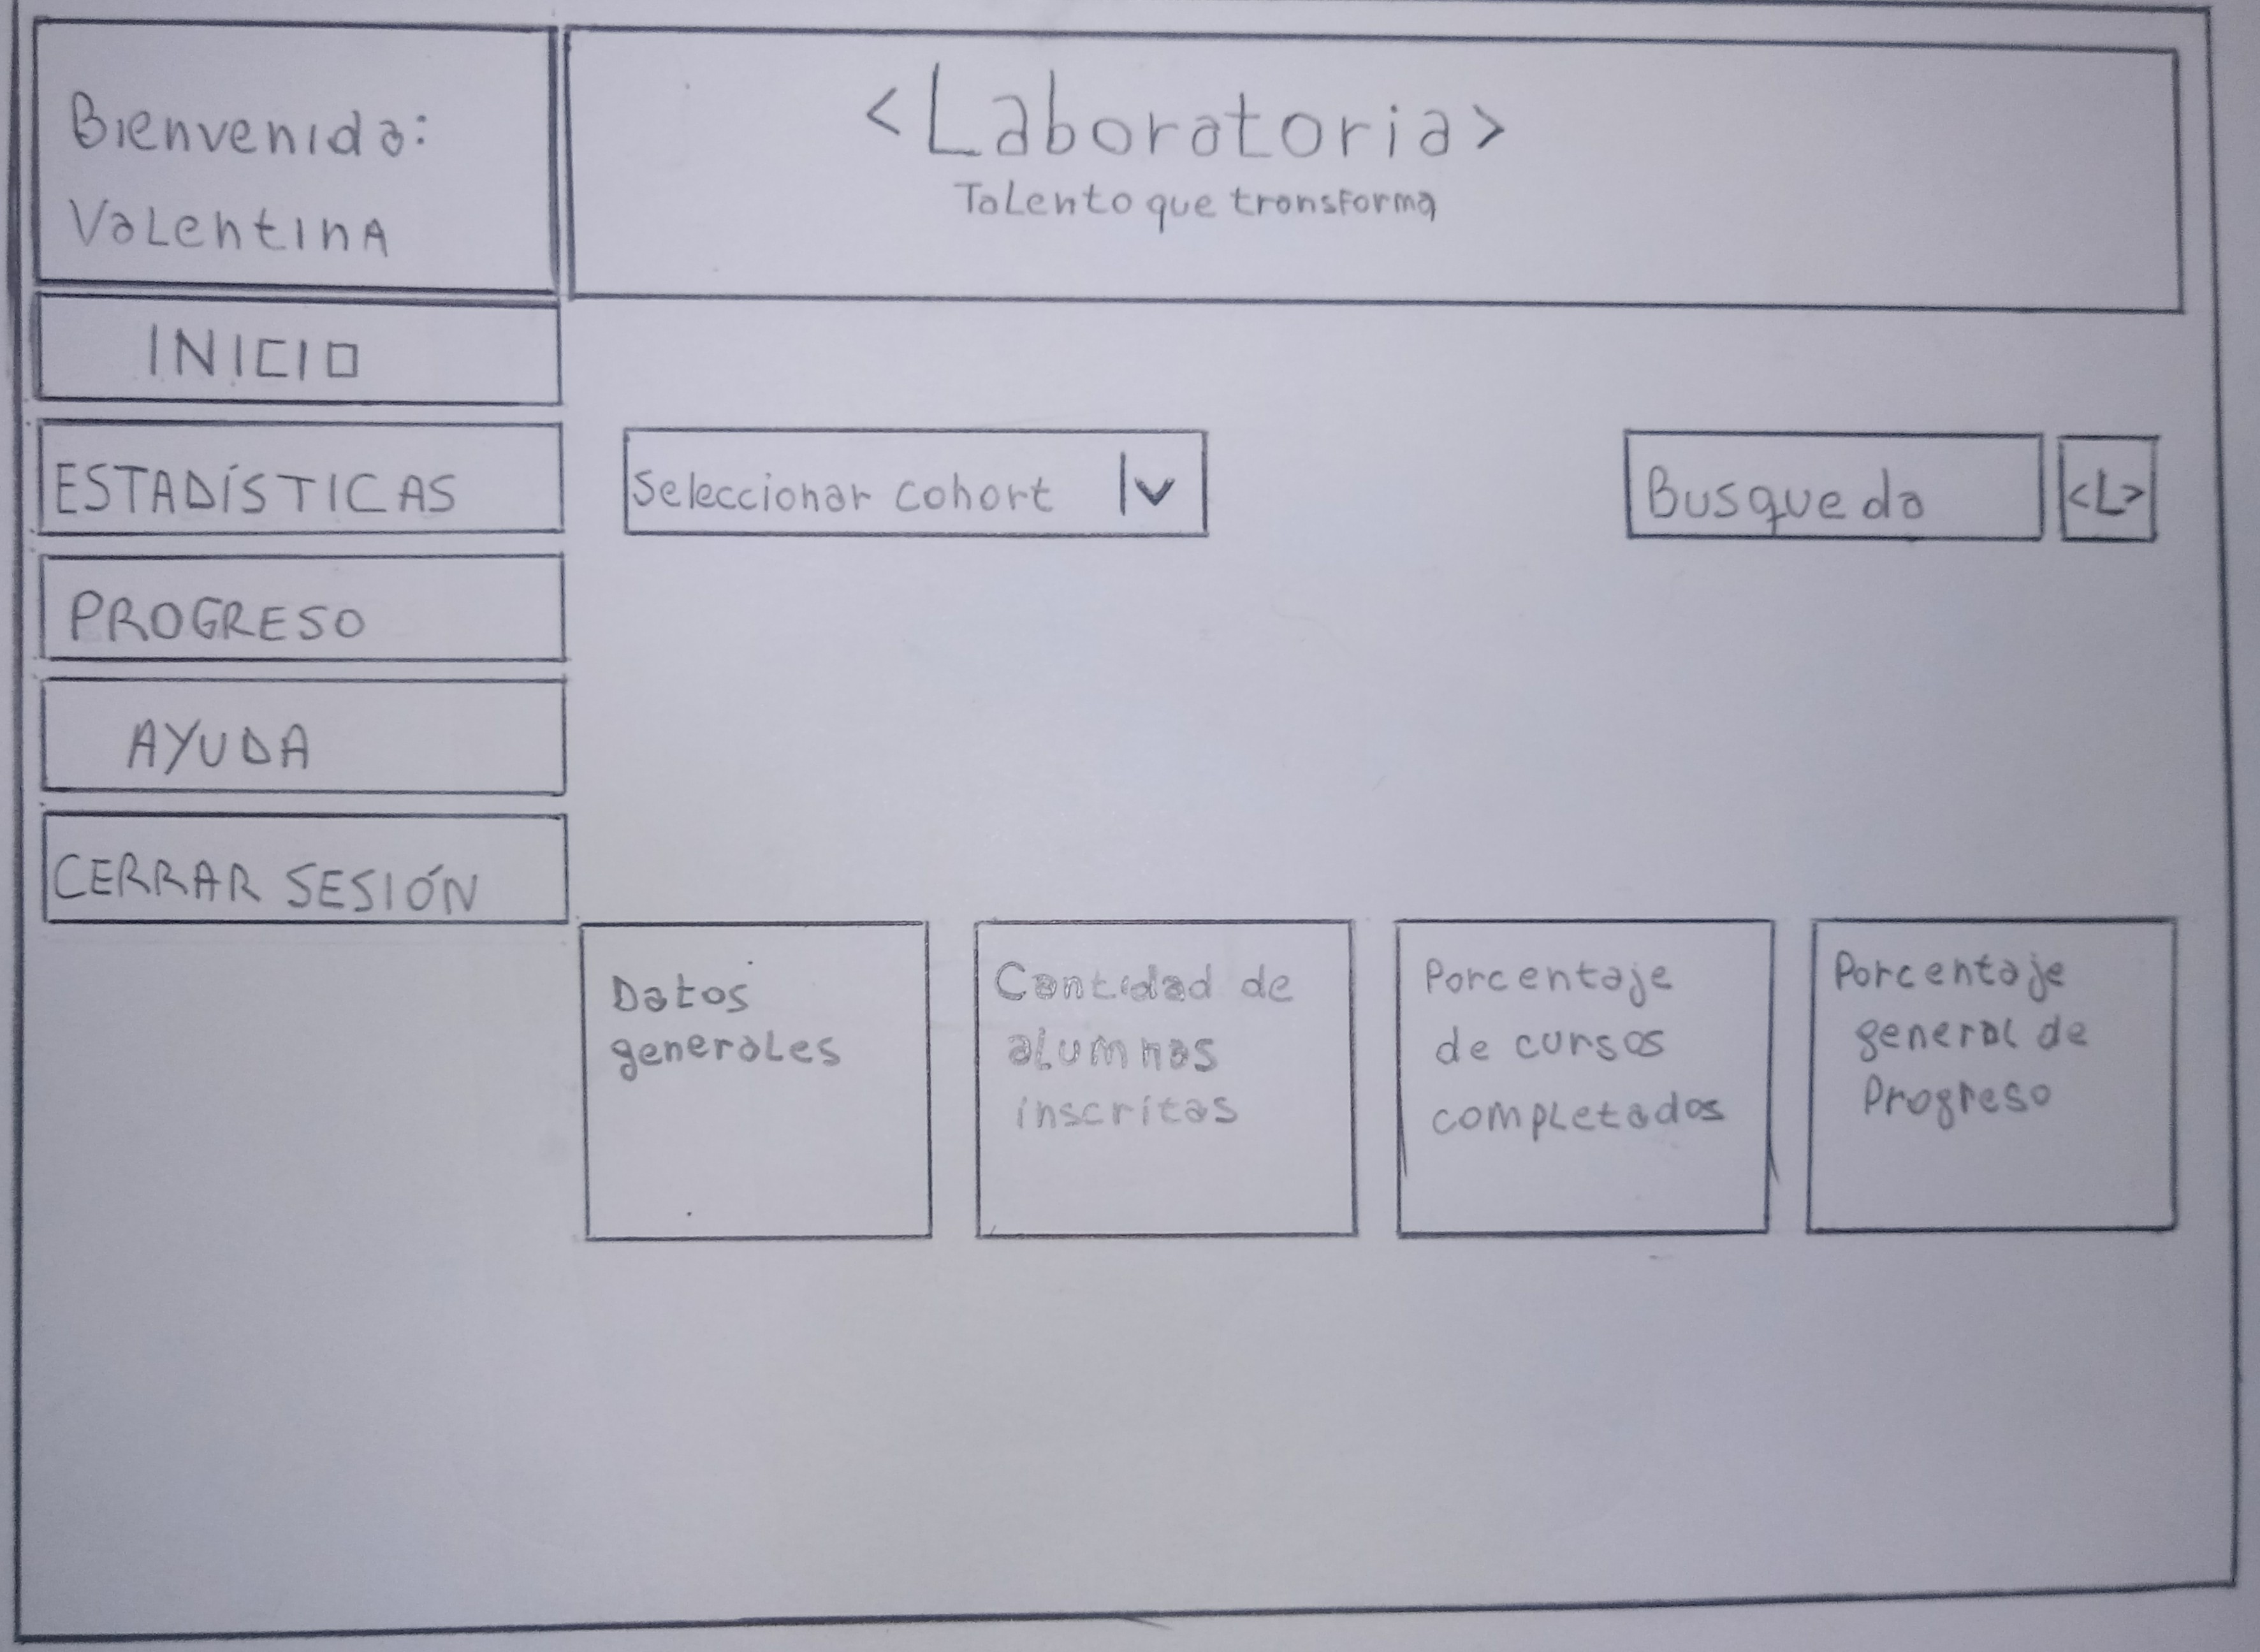 Bienvenida:
Valentina
<Laboratoria>
Talento que transforma
INICIO
ESTADÍSTICAS
PROGRESO
AYUDA
CERRAR SESIÓN
Seleccionar cohort
Busqueda
<L>
Datos
generales
Cantidad de
alumnas
inscritas
Porcentaje
de cursos
completados
Porcentaje
general de
Progreso